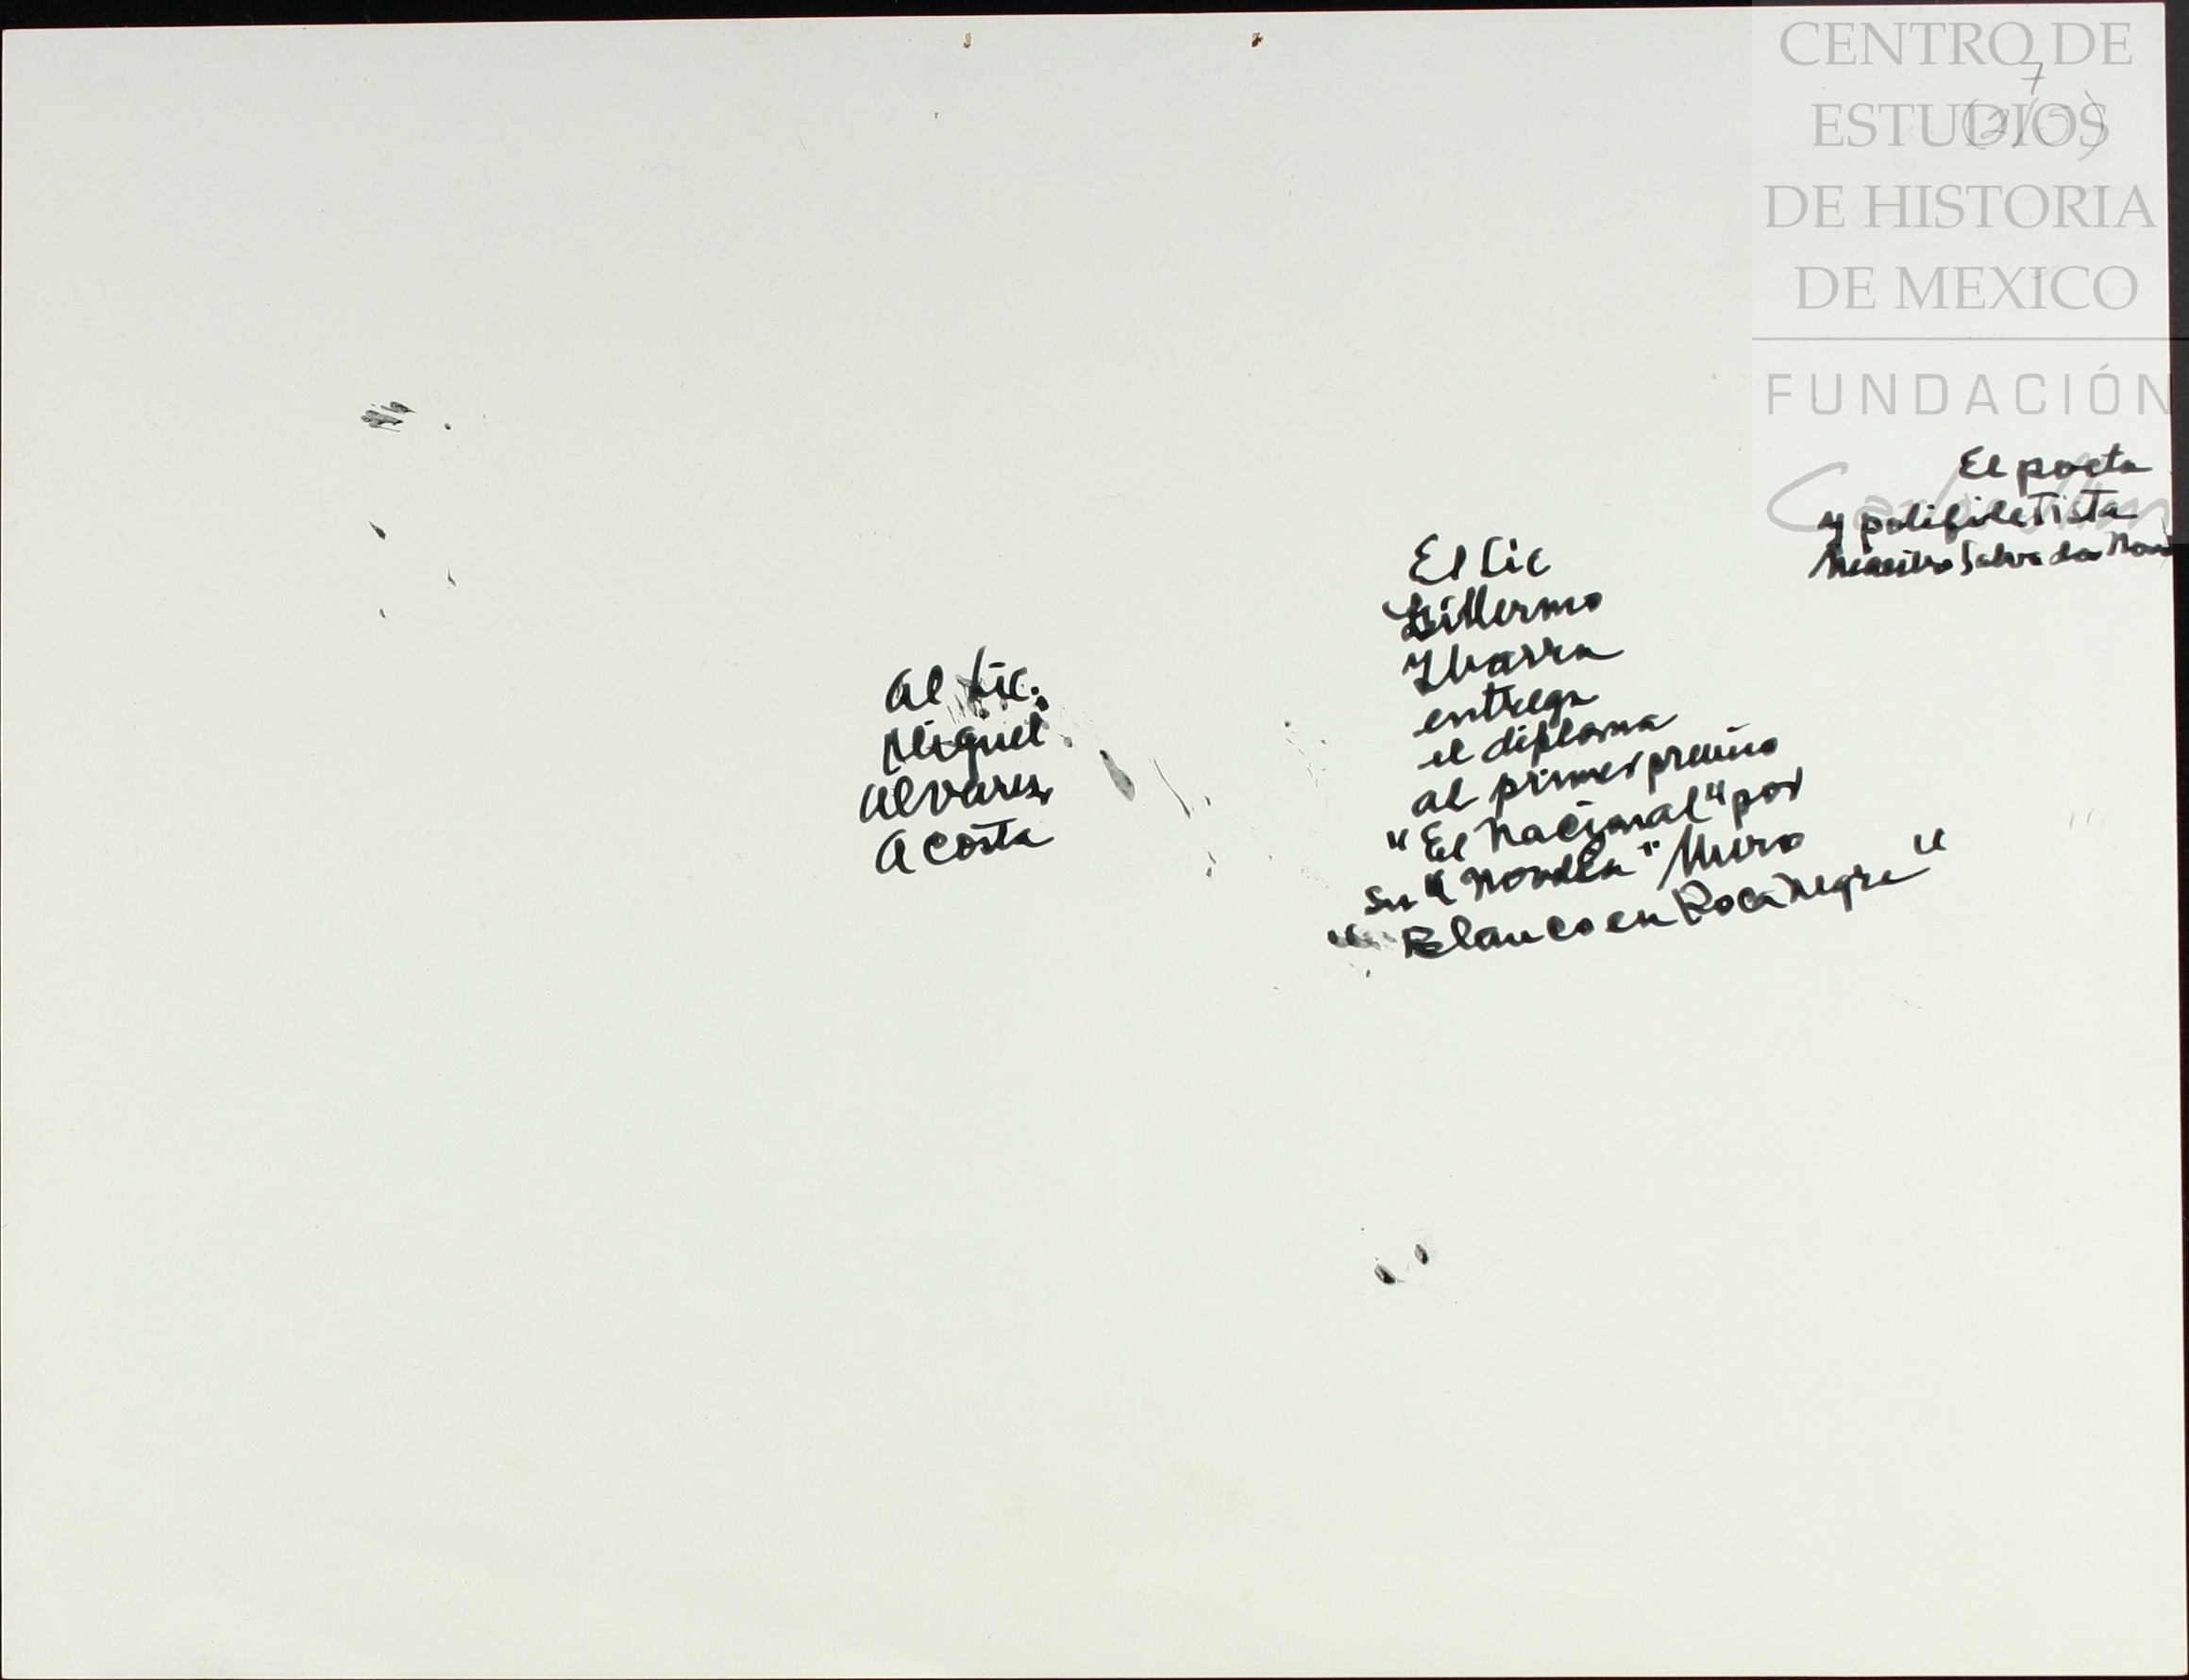 CENTRO DE
ESTUDIOS
DE HISTORIA
DE MEXICO
FUNDACIÓN
7
El poeta
y
Maestro Salvador Nov
El Lic
Guillermo
Ibarra
entrega
el diploma
al primer premio
"El Nacional" por
su "Novela" Muro
" Blanco en Roca Negra "
Al Lic.
Miguel
Alvarez
Acosta